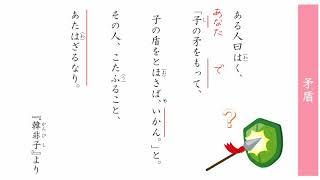 矛盾
ある人曰はく、
あなた で
「子の矛をもって、
子の盾をとほさば、いかん。」と。
その人、こたふること、
あたはざるなり。
『韓非子』より
かんぴし
?